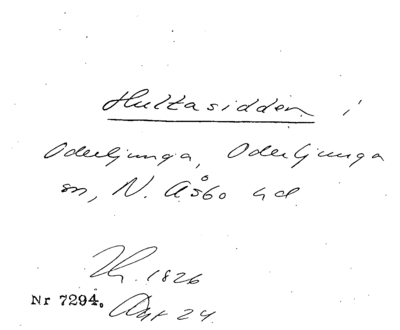 Hultasidden i
Oderljunga, Oderljunga
sn, N. Åsbo hd
1826
Nr 7294.
24